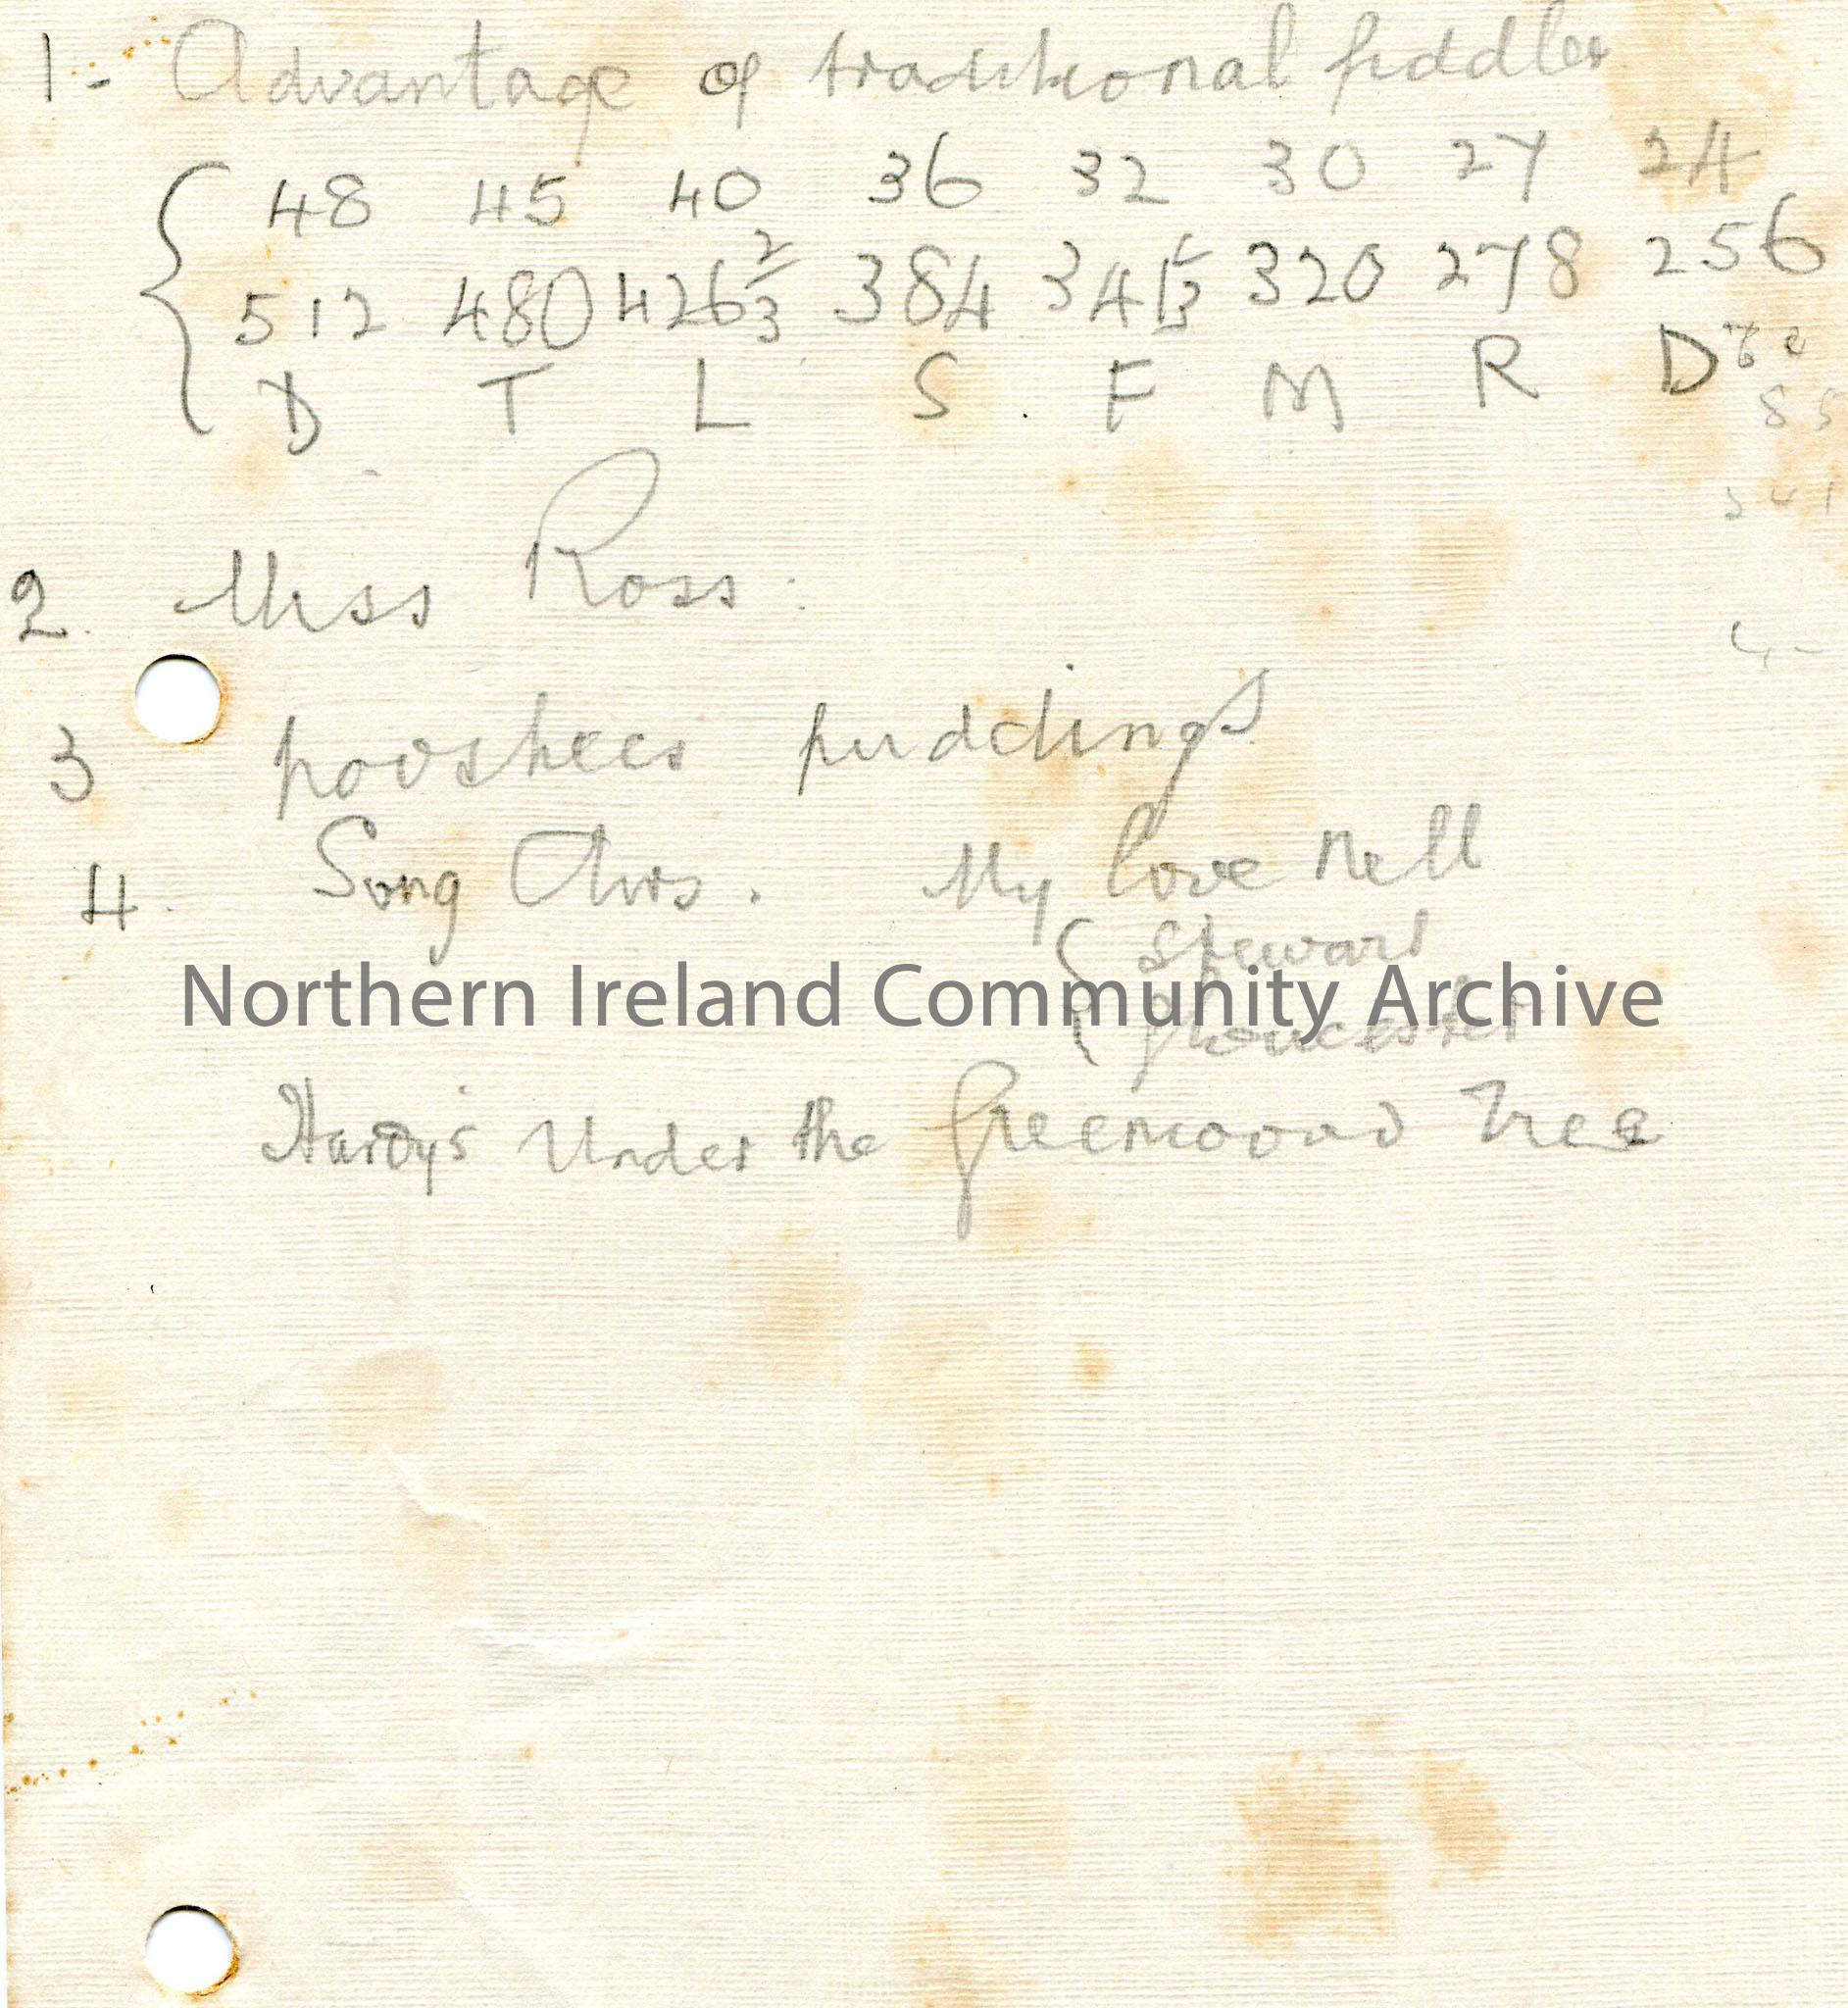 1- Advantage of traditional fiddler
48 45 40 36 32 30 27 24
512 480 426 2/3 384 341 1/3 320 278 256
D T L S F M R D
2. Miss Ross.
3 pooshees puddings
4. Song Airs. My love Nell
{ Stewart
Northern Ireland Community Archive
Gloucester
Hardy's Under the Greenwood Tree